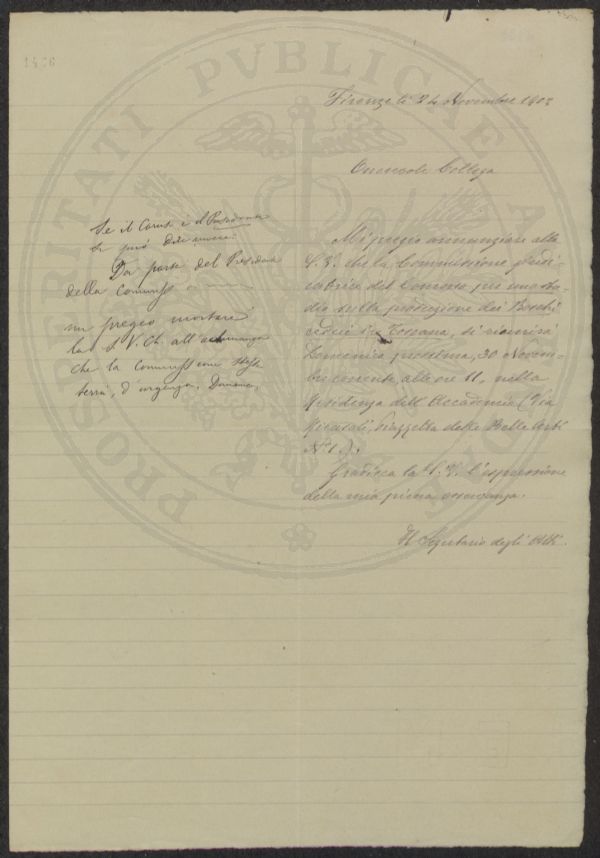 1406
PROSPERITATI PVBLICAE AVGENDAE
Firenze li 24 Novembre 1902
Onorevole Collega
Mi pregio annunziare alla
S. V. che la Commissione giudi-
catrice del Concorso per uno stu-
dio sulla produzione dei Boschi
cedui in Toscana, si riunirà
Domenica prossima, 30 Novem-
bre corrente, alle ore 11, nella
Residenza dell'Accademia (Via
Ricasoli, Piazzetta delle Belle Arti
N° 1.).
Gradisca la S. V. l'espressione
della mia piena osservanza.
Il Segretario degli Atti.
Se il Caruso è il Presidente
si può dire
Da parte del Presidente
della Commiss
mi pregio
la S V. Ch. all'adunanza
che la Commiss
terrà, d'urgenza, Domenica,